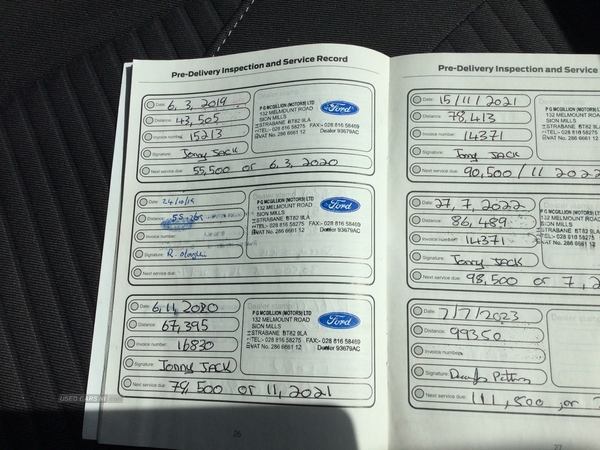 Pre-Delivery Inspection and Service Record
Date: 6, 3, 2019
Distance: 43,505
Invoice number: 15213
Signature: Jonny JACK
Next service due: 55,500 or 6, 3, 2020
P G MCGILLION (MOTORS) LTD
132 MELMOUNT ROAD
SION MILLS
STRABANE BT82 9LA
TEL:- 028 816 58275 FAX:- 028 816 58469
VAT No. 286 6661 12 Dealer 93679AC
Ford
Date:
Distance:
Invoice number:
Signature:
Next service due:
P G MCGILLION (MOTORS) LTD
132 MELMOUNT ROAD
SION MILLS
STRABANE BT82 9LA
TEL:- 028 816 58275 FAX:- 028 816 58469
VAT No. 286 6661 12 Dealer 93679AC
Ford
Date: 6, 11, 2020
Distance: 67,395
Invoice number: 16830
Signature: Jonny JACK
Next service due: 79,500 or 11, 2021
P G MCGILLION (MOTORS) LTD
132 MELMOUNT ROAD
SION MILLS
STRABANE BT82 9LA
TEL:- 028 816 58275 FAX:- 028 816 58469
VAT No. 286 6661 12 Dealer 93679AC
Ford
26
Pre-Delivery Inspection and Service
Date: 15/11/2021
Distance: 78,413
Invoice number: 14371
Signature: Jonny JACK
Next service due: 90,500/11 2022
P G MCGILLION (MOTORS) LTD
132 MELMOUNT ROAD
SION MILLS
STRABANE BT82 9LA
TEL:- 028 816 58275
VAT No. 286 6661 12
Date: 27, 7, 2022
Distance: 86,489
Invoice number: 14371
Signature: Jonny JACK
Next service due: 98,500 or 7, 2
P G MCGILLION (MOTORS) LTD
132 MELMOUNT ROAD
SION MILLS
STRABANE BT82 9LA
TEL:- 028 816 58275
VAT No. 286 6661 12
Date: 7/7/2023
Distance: 99350
Invoice number:
Signature:
Next service due: 111,500, or
27
USED CARS NI